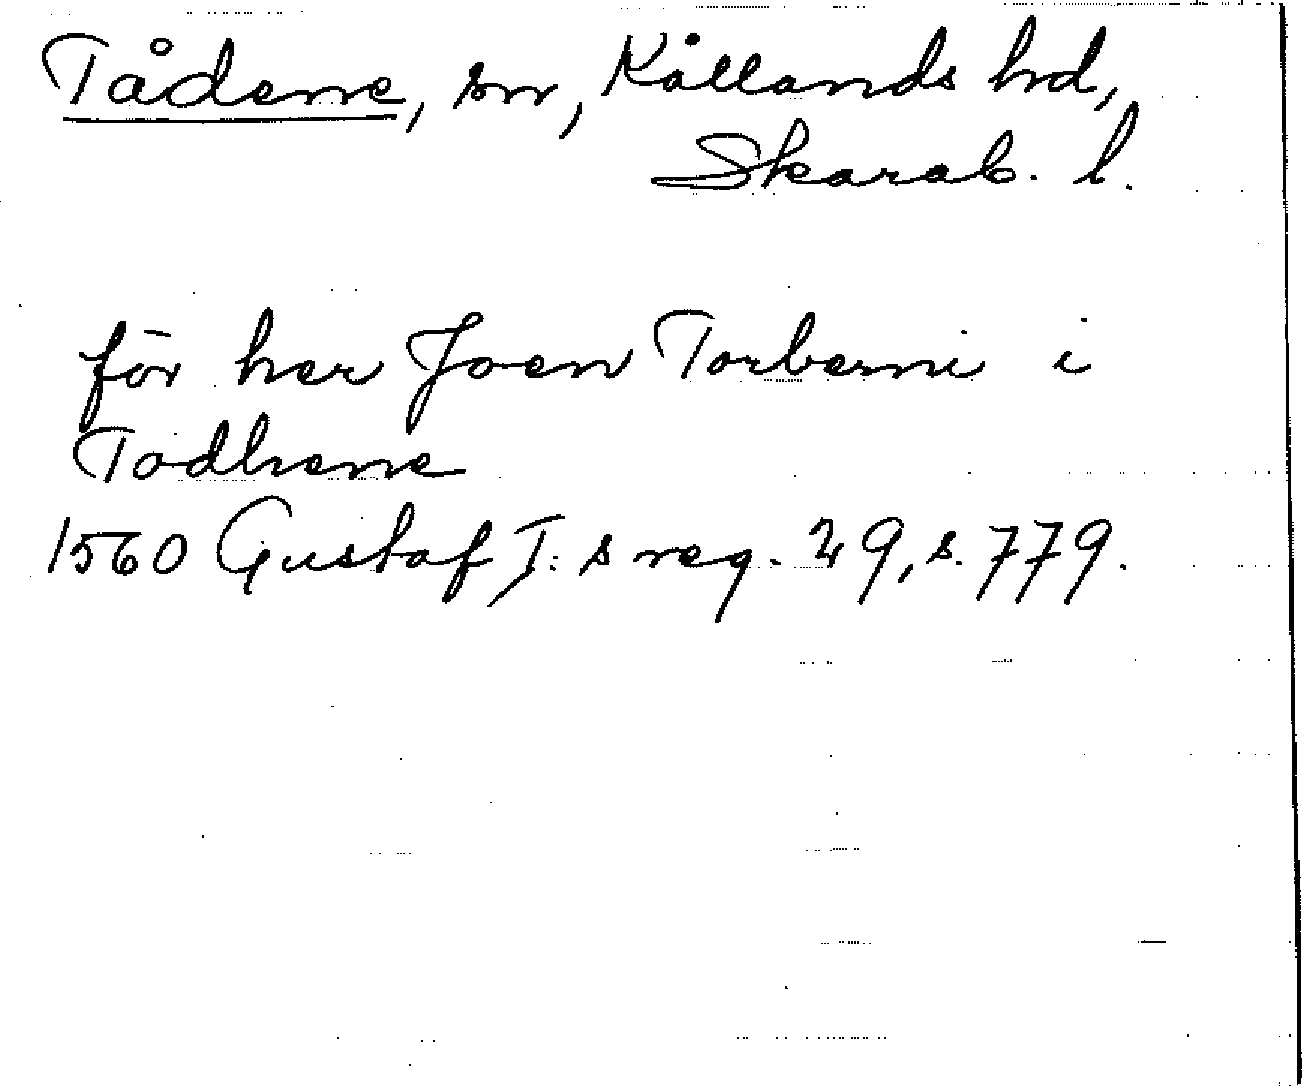 Tådene, sn, Kållands hd,
Skarab. l.
för her Joen Torberni i
Todhene
1560 Gustaf I:s reg. 29, s. 779.